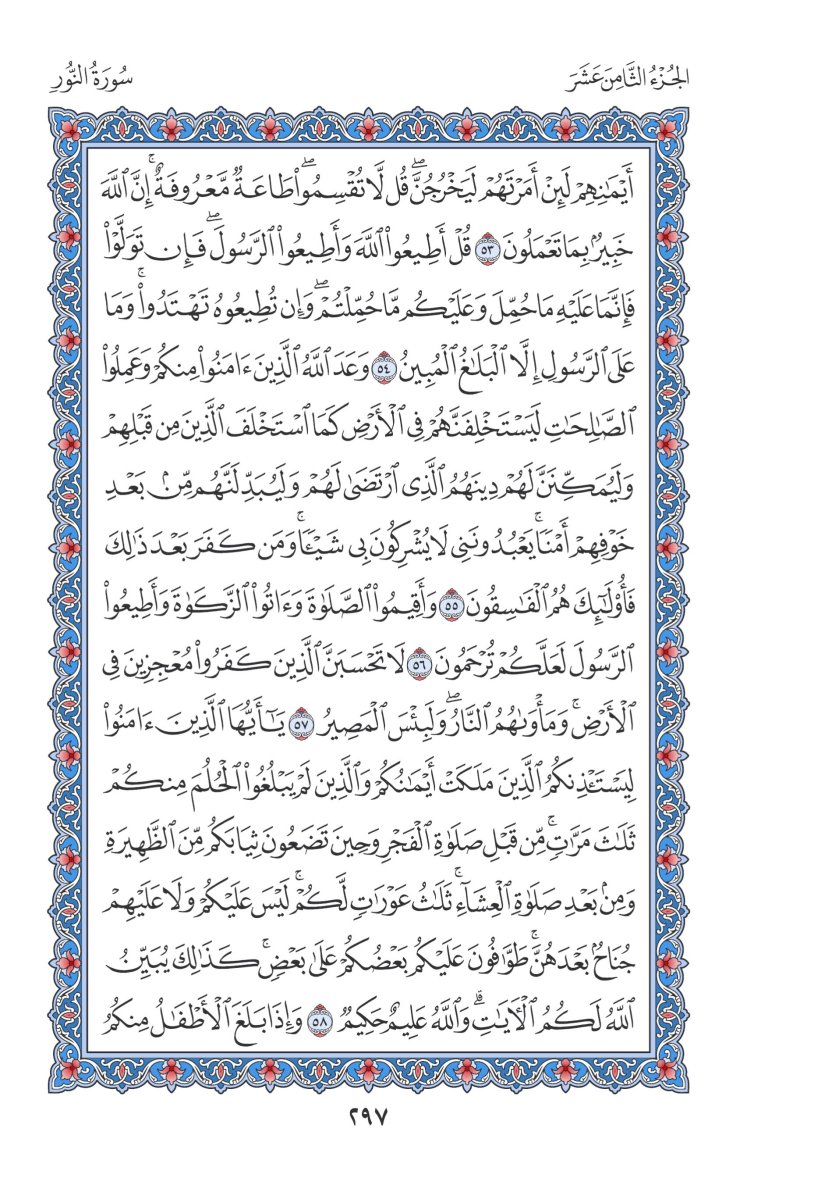 الجُزْءُ الثَّامِنَ عَشَرَ
سُورَةُ النُّورِ
أَيْمَٰنِهِمْ لَئِنْ أَمَرْتَهُمْ لَيَخْرُجُنَّۖ قُل لَّا تُقْسِمُواْۖ طَاعَةٌ مَّعْرُوفَةٌۚ إِنَّ ٱللَّهَ
خَبِيرُۢ بِمَا تَعْمَلُونَ ٥٣ قُلْ أَطِيعُواْ ٱللَّهَ وَأَطِيعُواْ ٱلرَّسُولَۖ فَإِن تَوَلَّوْاْ
فَإِنَّمَا عَلَيْهِ مَا حُمِّلَ وَعَلَيْكُم مَّا حُمِّلْتُمْۖ وَإِن تُطِيعُوهُ تَهْتَدُواْۚ وَمَا
عَلَى ٱلرَّسُولِ إِلَّا ٱلْبَلَٰغُ ٱلْمُبِينُ ٥٤ وَعَدَ ٱللَّهُ ٱلَّذِينَ ءَامَنُواْ مِنكُمْ وَعَمِلُواْ
ٱلصَّٰلِحَٰتِ لَيَسْتَخْلِفَنَّهُمْ فِى ٱلْأَرْضِ كَمَا ٱسْتَخْلَفَ ٱلَّذِينَ مِن قَبْلِهِمْ
وَلَيُمَكِّنَنَّ لَهُمْ دِينَهُمُ ٱلَّذِى ٱرْتَضَىٰ لَهُمْ وَلَيُبَدِّلَنَّهُم مِّنۢ بَعْدِ
خَوْفِهِمْ أَمْنًاۚ يَعْبُدُونَنِى لَا يُشْرِكُونَ بِى شَيْـًٔاۚ وَمَن كَفَرَ بَعْدَ ذَٰلِكَ
فَأُوْلَٰٓئِكَ هُمُ ٱلْفَٰسِقُونَ ٥٥ وَأَقِيمُواْ ٱلصَّلَوٰةَ وَءَاتُواْ ٱلزَّكَوٰةَ وَأَطِيعُواْ
ٱلرَّسُولَ لَعَلَّكُمْ تُرْحَمُونَ ٥٦ لَا تَحْسَبَنَّ ٱلَّذِينَ كَفَرُواْ مُعْجِزِينَ فِى
ٱلْأَرْضِۚ وَمَأْوَىٰهُمُ ٱلنَّارُۖ وَلَبِئْسَ ٱلْمَصِيرُ ٥٧ يَٰٓأَيُّهَا ٱلَّذِينَ ءَامَنُواْ
لِيَسْتَـْٔذِنكُمُ ٱلَّذِينَ مَلَكَتْ أَيْمَٰنُكُمْ وَٱلَّذِينَ لَمْ يَبْلُغُواْ ٱلْحُلُمَ مِنكُمْ
ثَلَٰثَ مَرَّٰتٍۚ مِّن قَبْلِ صَلَوٰةِ ٱلْفَجْرِ وَحِينَ تَضَعُونَ ثِيَابَكُم مِّنَ ٱلظَّهِيرَةِ
وَمِنۢ بَعْدِ صَلَوٰةِ ٱلْعِشَآءِۚ ثَلَٰثُ عَوْرَٰتٍ لَّكُمْۚ لَيْسَ عَلَيْكُمْ وَلَا عَلَيْهِمْ
جُنَاحُۢ بَعْدَهُنَّۚ طَوَّٰفُونَ عَلَيْكُم بَعْضُكُمْ عَلَىٰ بَعْضٍۚ كَذَٰلِكَ يُبَيِّنُ
ٱللَّهُ لَكُمُ ٱلْأٓيَٰتِۗ وَٱللَّهُ عَلِيمٌ حَكِيمٌ ٥٨ وَإِذَا بَلَغَ ٱلْأَطْفَٰلُ مِنكُمُ
٢٩٧